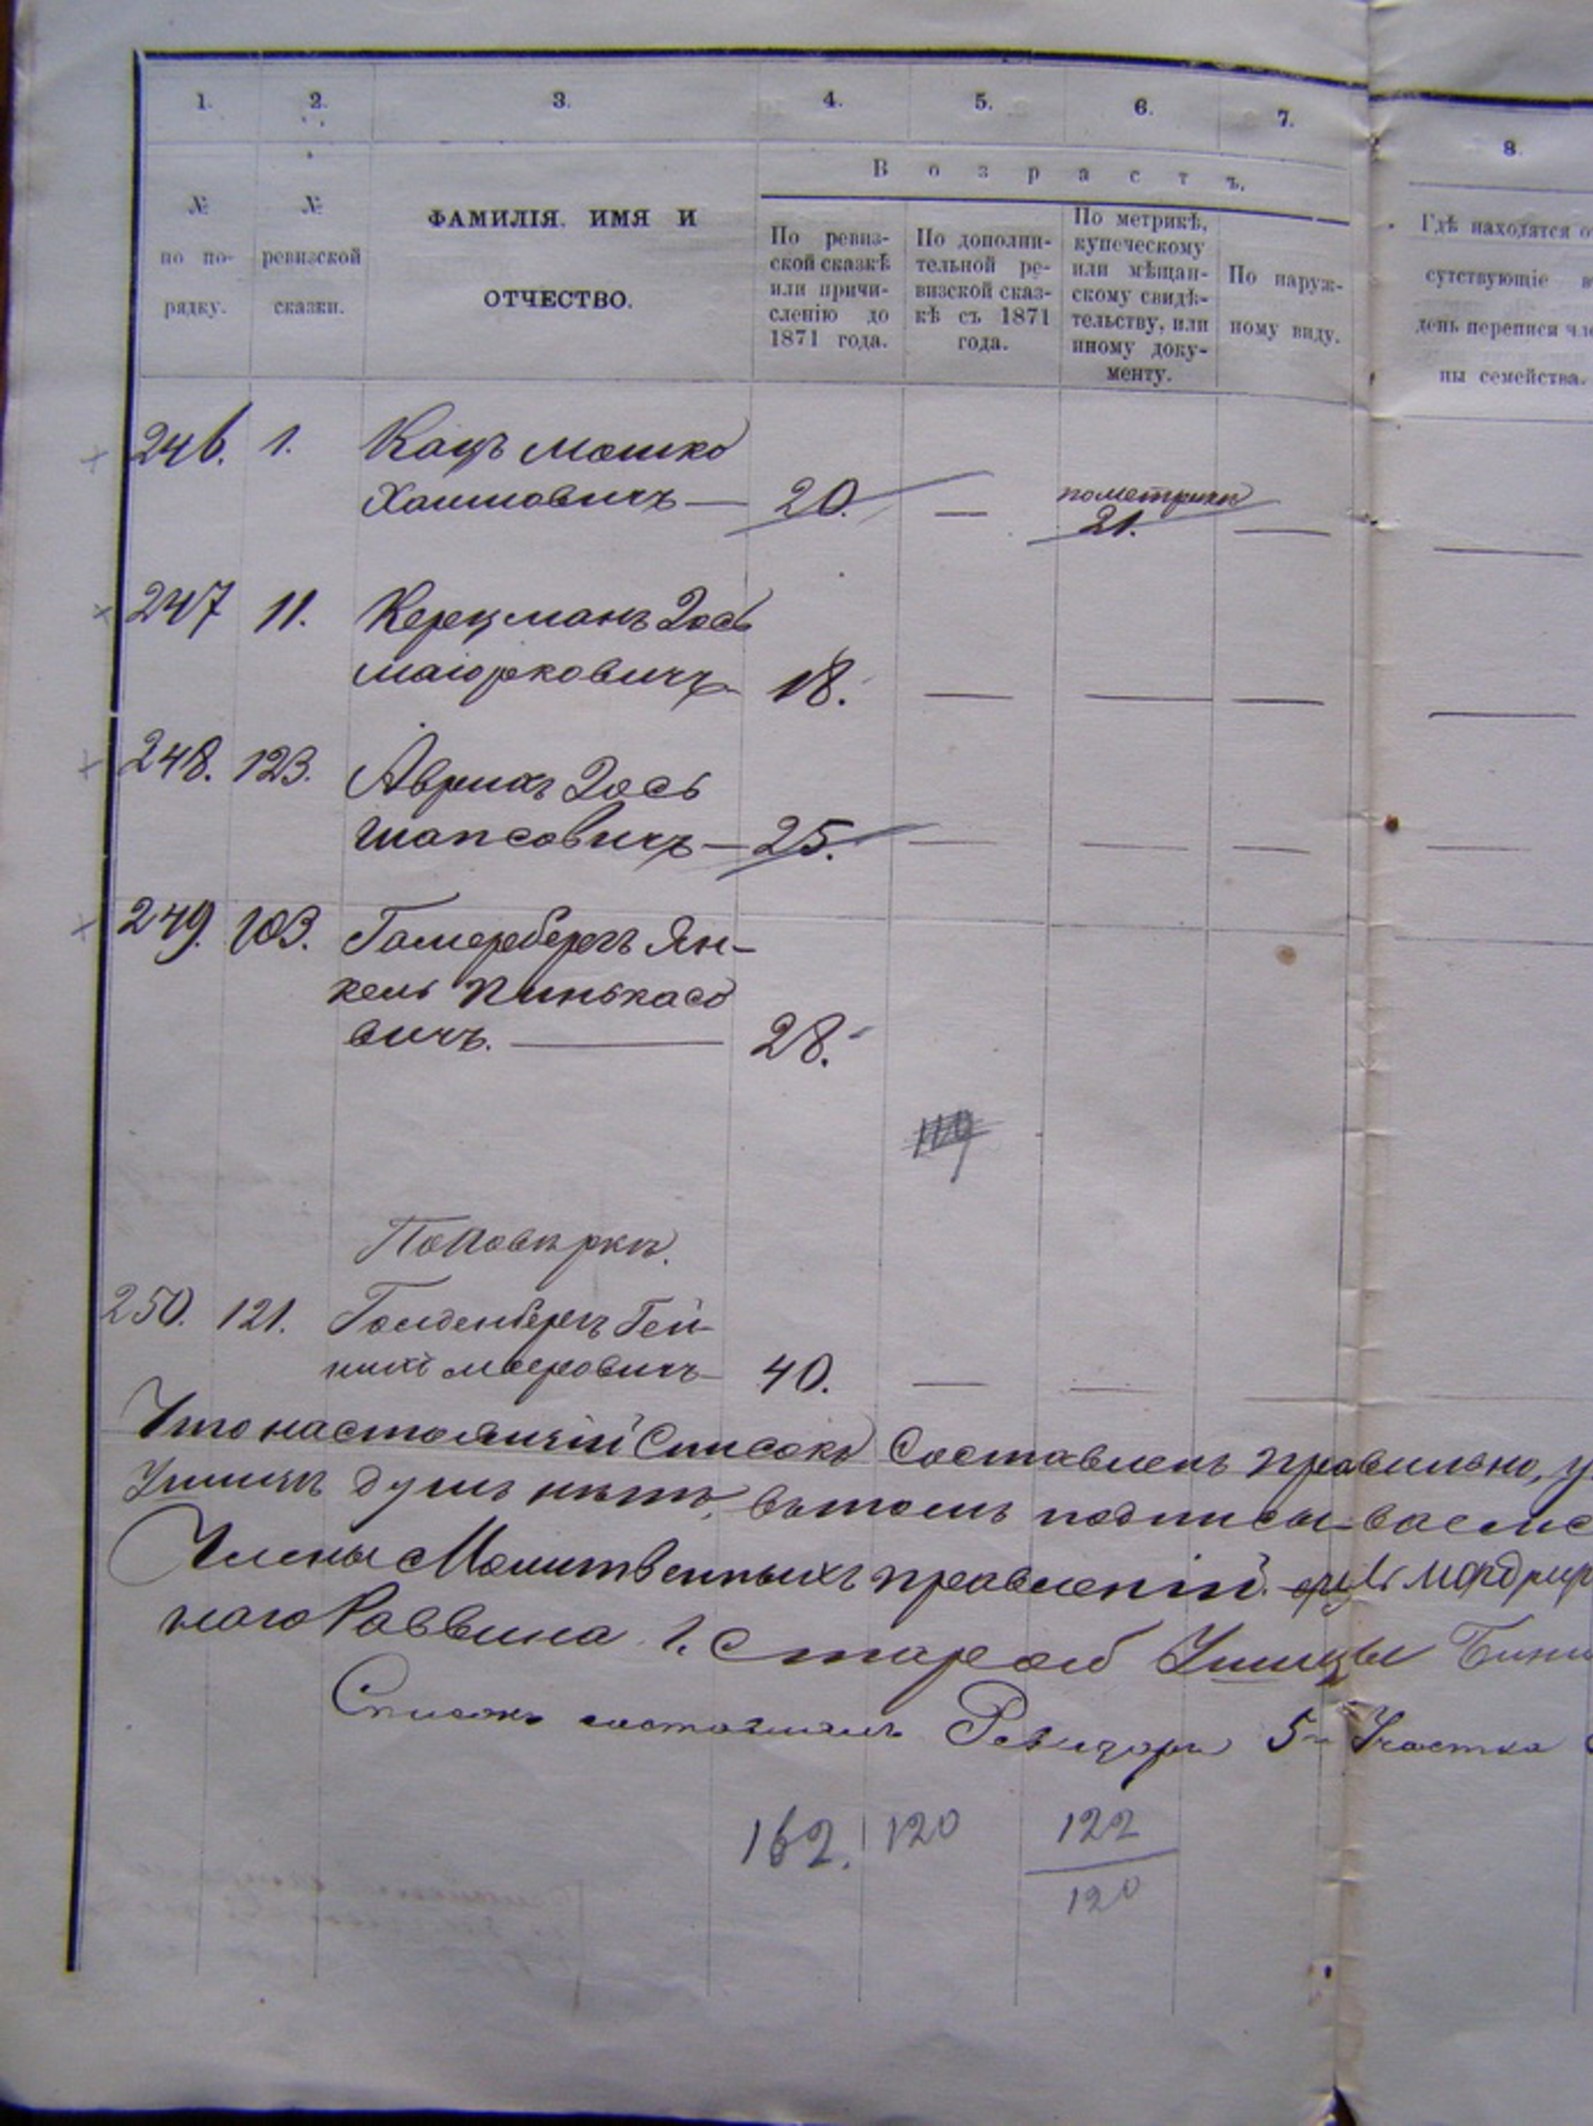 1. 2. 3. 4. 5. 6. 7. 8.
В о з р а с т ъ.
№ по по-
рядку.
№ ревизской
сказки.
ФАМИЛІЯ, ИМЯ И
ОТЧЕСТВО.
По ревиз-
ской сказкѣ
или причи-
сленію до
1871 года.
По дополни-
тельной ре-
визской сказ-
кѣ съ 1871
года.
По метрикѣ,
купеческому
или мѣщан-
скому свидѣ-
тельству, или
иному доку-
менту.
По наруж-
ному виду.
Гдѣ находятся о
сутствующіе в
день переписи чле
ны семейства.
246. 1. Кацъ Мошко
Хаимовичъ — 20. — по метрикѣ 21. — —
247 11. Керцманъ Іось
Маіорковичъ 18. — — — —
248. 123. Аврихъ Іось
Шапсовичъ — 25. — — — —
249. 103. Гамербергъ Ян-
кель Пинькасо
вичъ. — 28.
119
По повѣркѣ.
250. 121. Голденбергъ Гей-
нихъ Мееровичъ — 40. — —
Что настоящій Списокъ Составленъ правильно, у
душъ нѣтъ, въ томъ подписы-ваемс
Члены Молитвенныхъ правленій.
наго Раввина г. Старой Ушицы
Списокъ составлялъ Ревизоръ 5го Участка
162. 120 122
120